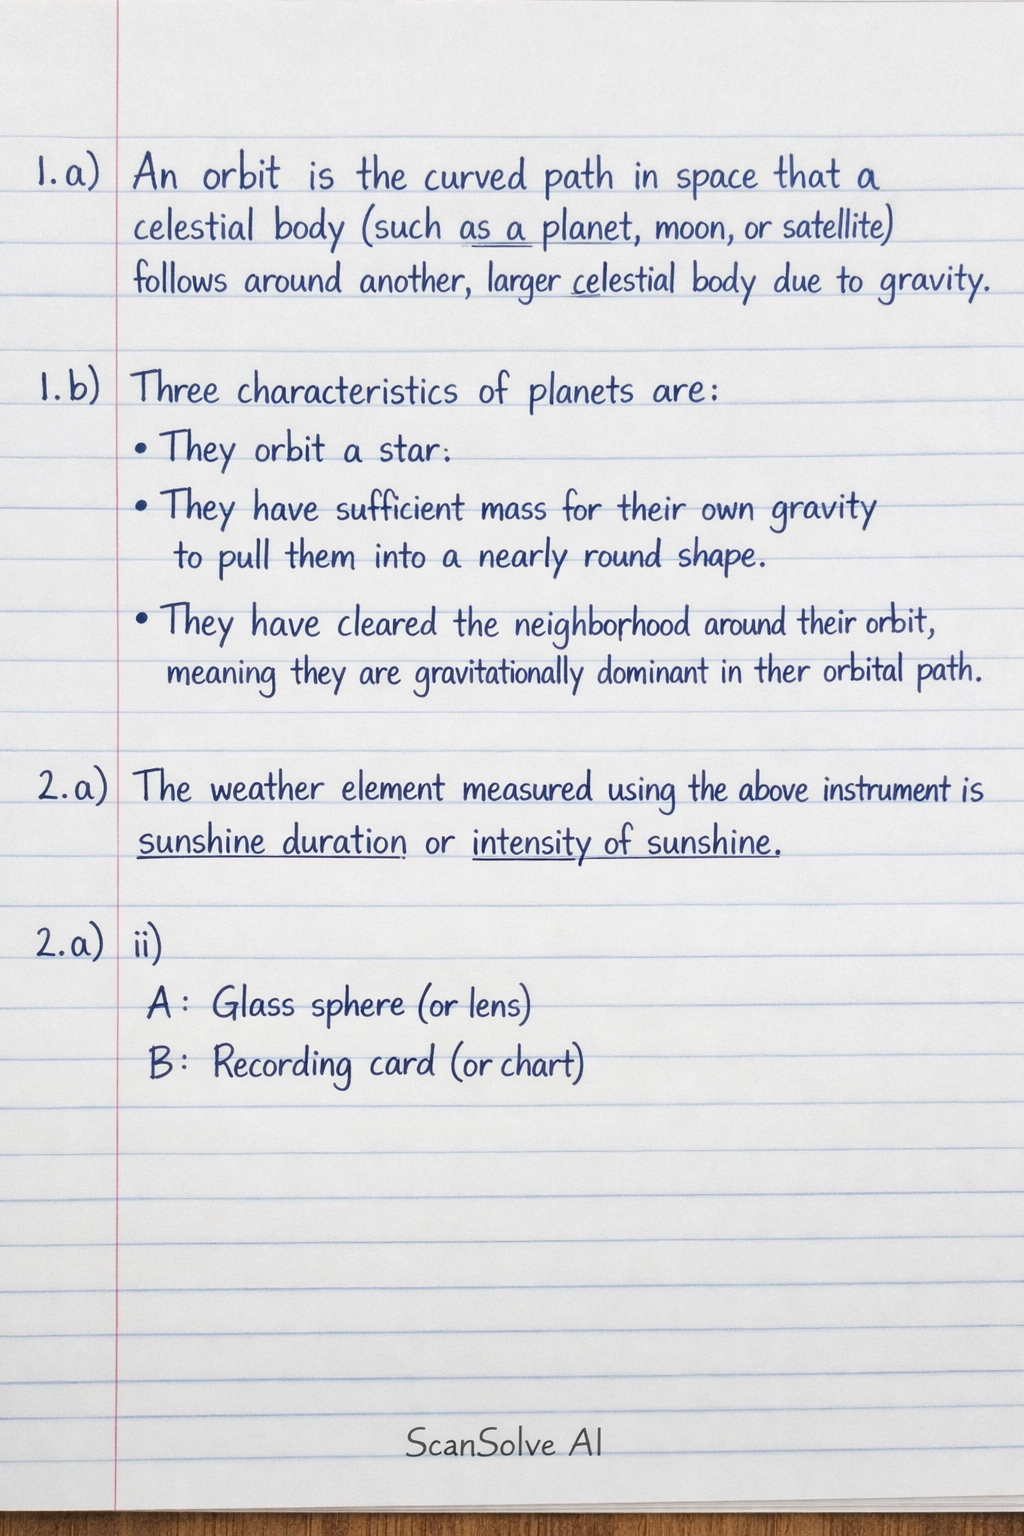 1.a) An orbit is the curved path in space that a
celestial body (such as a planet, moon, or satellite)
follows around another, larger celestial body due to gravity.
1.b) Three characteristics of planets are:
• They orbit a star:
• They have sufficient mass for their own gravity
to pull them into a nearly round shape.
• They have cleared the neighborhood around their orbit,
meaning they are gravitationally dominant in ther orbital path.
2.a) The weather element measured using the above instrument is
sunshine duration or intensity of sunshine.
2.a) ii)
A: Glass sphere (or lens)
B: Recording card (or chart)
ScanSolve AI